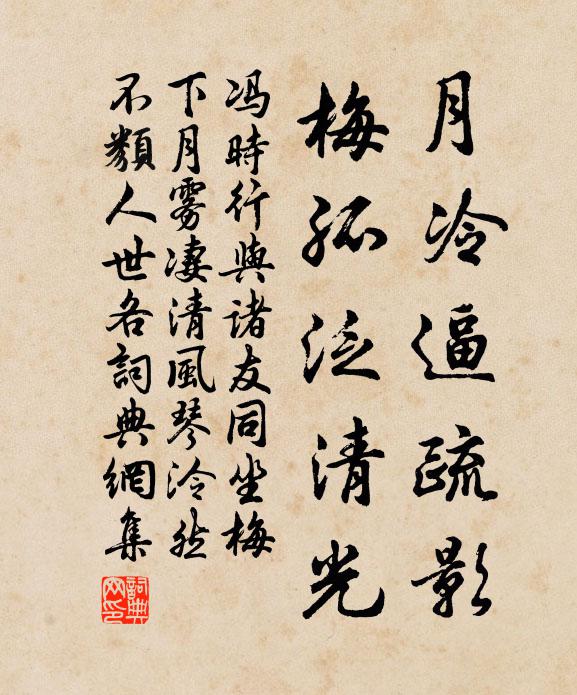 月冷逼疏影
梅孤泛清光
馮時行與諸友同坐梅
下月霧淒清風琴泠然
不類人世各詞典網集
詞典
网印